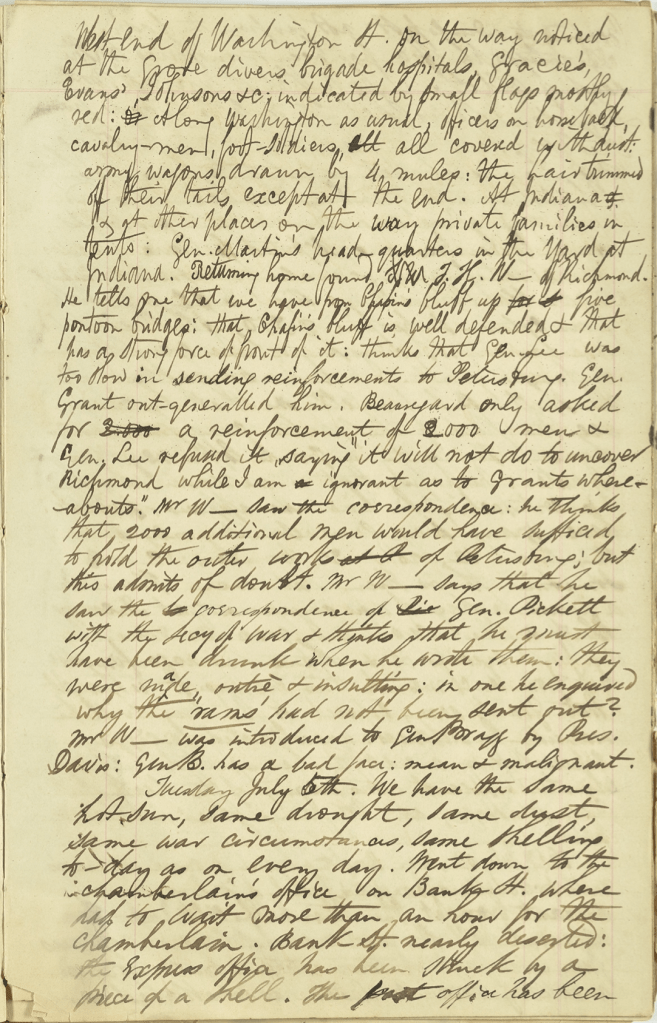 West end of Washington St. on the way noticed
at the Grove divers brigade hospitals, Gracie's,
Evans', Johnsons &c; indicated by small flags mostly
red: Along Washington as usual, officers on horseback,
cavalry-men, foot-soldiers, all covered with dust:
army wagons drawn by 4 mules: the hair trimmed
of their tails except at the end. At Indiana &
& at other places on the way private families in
tents: Gen. Martin's head-quarters in the Yard at
Indiana. Returning home found T. H. W— of Richmond.
He tells me that we have from Chafin's bluff up five
pontoon bridges: that Chafin's bluff is well defended & that
has a strong force in front of it: thinks that Gen. Lee was
too slow in sending reinforcements to Petersburg. Gen.
Grant out-generalled him. Beauregard only asked
for 2.000 a reinforcement of 2000 men &
Gen. Lee refused it, saying "it will not do to uncover
Richmond while I am ignorant as to Grants where-
-abouts." Mr W— saw the correspondence: he thinks
that 2000 additional men would have sufficed
to hold the outer works of Petersburg; but
this admits of doubt. Mr W— says that he
saw the correspondence of Gen. Pickett
with the Secy of War & thinks that he must
have been drunk when he wrote them: they
were made, outré & insulting: in one he enquired
why the 'rams' had not been sent out?
Mr W— was introduced to Gen Bragg by Pres.
Davis: Gen B. has a bad face: mean & malignant.
Tuesday July 5th. We have the same
hot sun, same drought, same dust,
same war circumstances, same shelling
to-day as on every day. Went down to the
chamberlain's office on Bank St. where
had to wait more than an hour for the
chamberlain. Bank St. nearly deserted:
the Express office has been struck by a
piece of a shell. The post office has been